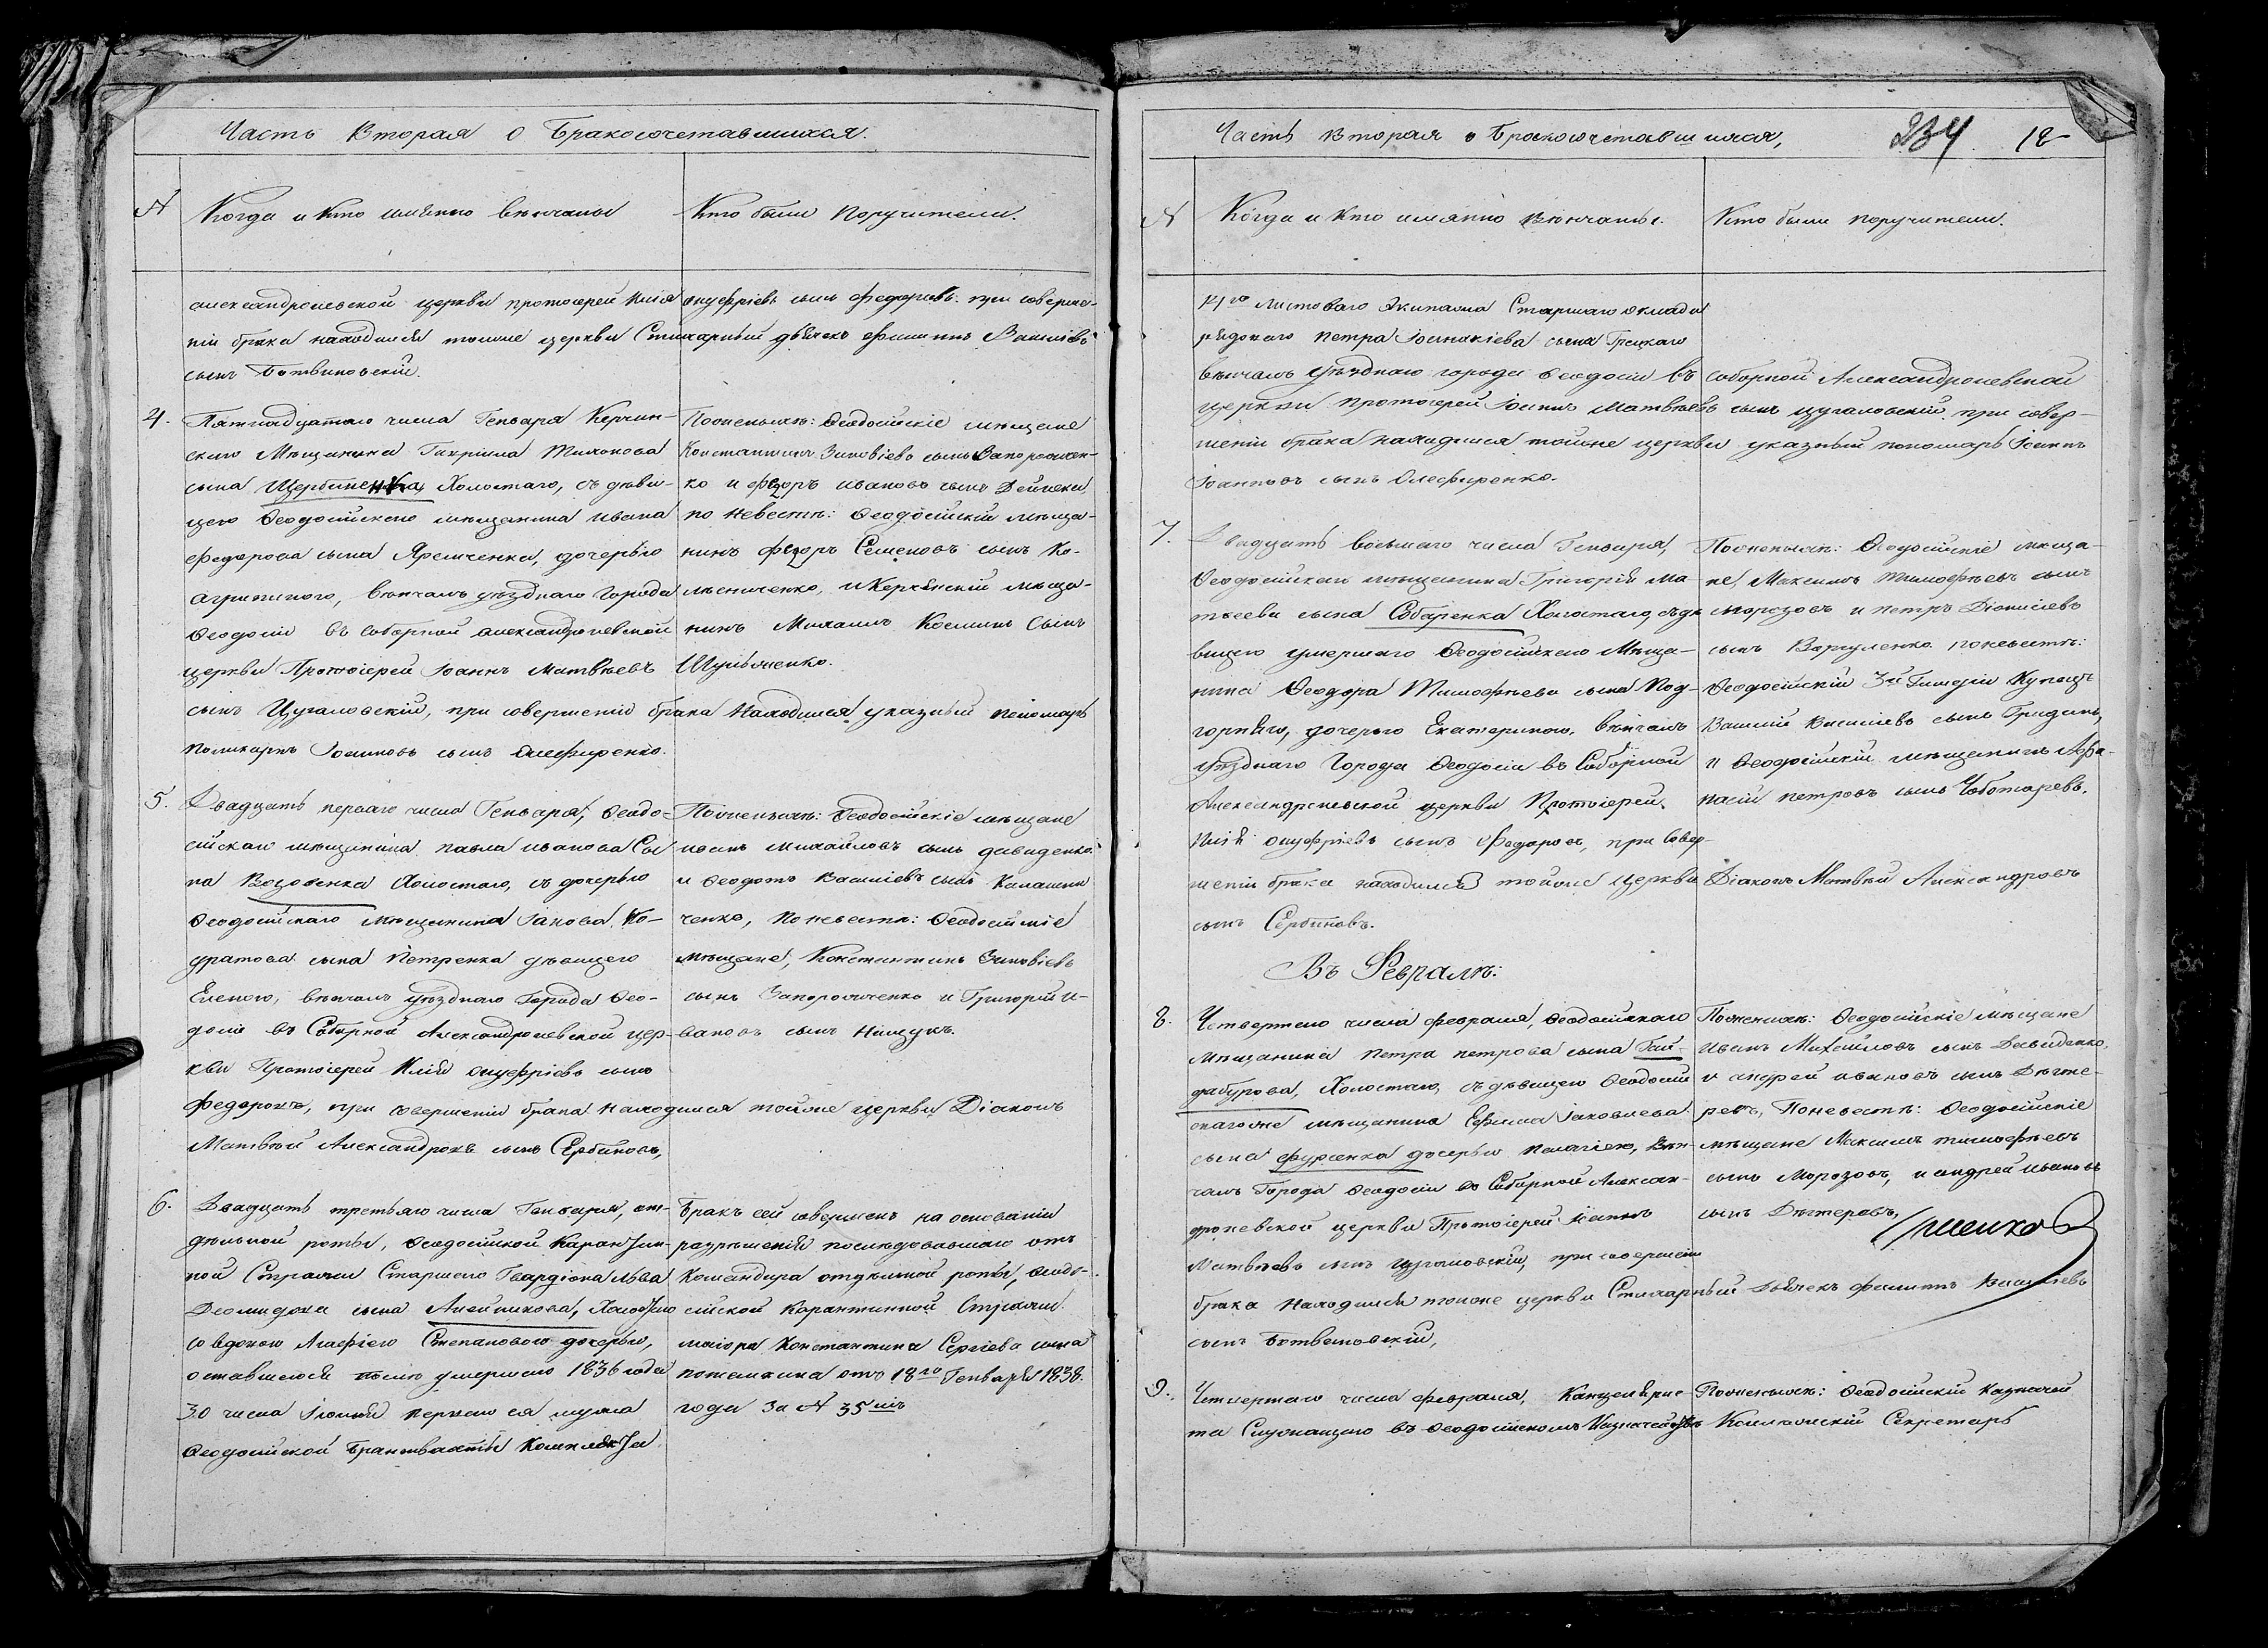 Часть Вторая о Бракосочетавшихся.
№
Когда и Кто имянно венчаны
Кто были Поручители.
александроневской церкви протоіерей Илія онуфріевъ сынъ федоровъ. при соверше-
ніи брака находился тойже церкви Стихарный дьячекъ Василіевъ
сынъ Ботвиновскій.
4. Пятнадцатаго числа Генваря Керчин-
скаго Мещанина Гавріила Тихонова
сына Щербиненка, Холостаго, съ деви-
цею Ѳеодосійскаго мещанина ивана
федорова сына Яремченка, дочерью
агрипиною, венчалъ уезднаго города
Ѳеодосіи въ соборной александроневской
церкви Протоіерей Іоаннъ Матвеевъ
сынъ Цугаловскій, при совершеніи брака Находился указный пономарь
поликарпъ Іоанновъ сынъ Олефиренко.
Поженихе: Ѳеодосійскіе мещане
Константинъ Зиновіевъ сынъ Запорожчен-
ко и феодоръ ивановъ сынъ Дейнека,
по невесте: Ѳеодосійскій меща-
нинъ феодоръ Семеновъ сынъ Ко-
лесниченко, и Керченскій меща-
нинъ Михаилъ Косминъ Сынъ
Шульженко.
5. Двадцать перваго числа Генваря, Ѳеодо-
сійскаго мещанина павла иванова Сы
на Возовенка Холостаго, съ дочерью
Ѳеодосійскаго мещанина Іакова Ко-
дратова сына Петренка девицею
Еленою, венчалъ уезднаго Города Ѳео-
досіи въ Соборной Александроневской цер-
кви Протоіерей Илія онуфріевъ сынъ
федоровъ, при совершеніи брака находился тойже церкви Діаконъ
Матвей Александровъ сынъ Сербиновъ,
Поженихе: Ѳеодосійскіе мещане
иванъ михайловъ сынъ давиденко
и Ѳеодотъ Василіевъ сынъ Калашни
ченко, Поневесте: Ѳеодосійскіе
мещане, Константинъ Зиновіевъ
сынъ Запорожченко и Григорій и-
вановъ сынъ Нищукъ.
6. Двадцать третьяго числа Генваря, от-
дельной роты, Ѳеодосійской Карантин-
ной Стражи Старшаго Гвардіона Льва
Деомидова сына Алейникова, Холостаго
со вдовою Агафіею Степановою дочерью,
оставшеюся после умершаго 1836 года
30 числа Іюня перваго ея мужа
Ѳеодосійской Брантвахты Комплекта
Бракъ сей совершенъ на основаніи
разрешенія последовавшаго отъ
Командира отдельной роты, Ѳеодо-
сійской Карантинной Стражи
маіора Константина Сергіева сына
потемкина отъ 18го Генваря 1838.
года За № 35мъ
Часть Вторая о Бракосочетавшихся,
234 12
№
Когда и Кто имянно Венчаны.
Кто были поручители.
14го ластоваго Экипажа Старшаго оклада
рядоваго петра Іоанакіева сына Грецкаго
венчалъ Уезднаго города Ѳеодосіи въ соборной Александроневской
церкви протоіерей Іоаннъ Матвеевъ сынъ цугаловскій при совер-
шеніи брака находился тойже церкви указный пономарь Іоаннъ
Іоанновъ сынъ Олефиренко.
7. Двадцать восьмаго числа Генваря,
Ѳеодосійскаго мещанина Григорія Ма-
твеева сына Собаренка Холостаго, съ де
вицею умершаго Ѳеодосійскаго Меща-
нина Ѳеодора Тимофеева сына Под-
горняго, дочерью Екатериною, венчалъ
уезднаго Города Ѳеодосіи въ Соборной
Александроневской церкви Протоіерей
Илія онуфріевъ сынъ Федоровъ, при Совер-
шеніи брака находился тойже церкви Діаконъ Матвей Александровъ
сынъ Сербиновъ.
Поженихе: Ѳеодосійскіе меща-
не, Максимъ Тимофеевъ сынъ
Морозовъ и петръ Діонисіевъ
сынъ Варуленко поневесте:
Ѳеодосійскій 3й Гильдіи Купецъ
Василій Василіевъ сынъ Гриднь,
и Ѳеодосійскій мещанинъ Афа-
насій петровъ сынъ Чоботаревъ.
Въ Феврале:
8. Четвертаго числа февраля, Ѳеодосійскаго
мещанина петра петрова сына Гай-
дабурова, Холостаго, съ девицею Ѳеодосій
скагоже мещанина Ефима Іаковлева
сына фурсенка дочерью пелагіею, Вен-
чалъ Города Ѳеодосіи въ Соборной Алексан-
дроневской церкви Протоіерей Іоаннъ
Матвеевъ сынъ цугаловскій, при совершеніи
брака находился тойже церкви Стихарный Дьячекъ Василіевъ
сынъ Ботвиновскій,
Поженихе: Ѳеодосійскіе мещане
Иванъ Михайловъ сынъ Давиденко,
и андрей ивановъ сынъ Дегте-
ревъ, Поневесте: Ѳеодосійскіе
мещане Максимъ тимофеевъ
сынъ Морозовъ, и андрей ивановъ
сынъ Дехтеровъ.
9. Четвертаго числа февраля, Канцеляри-
та Служащаго въ Ѳеодосійскомъ Казначействе
Поженихе: Ѳеодосійскій Казначей
Коллежскій Секретарь